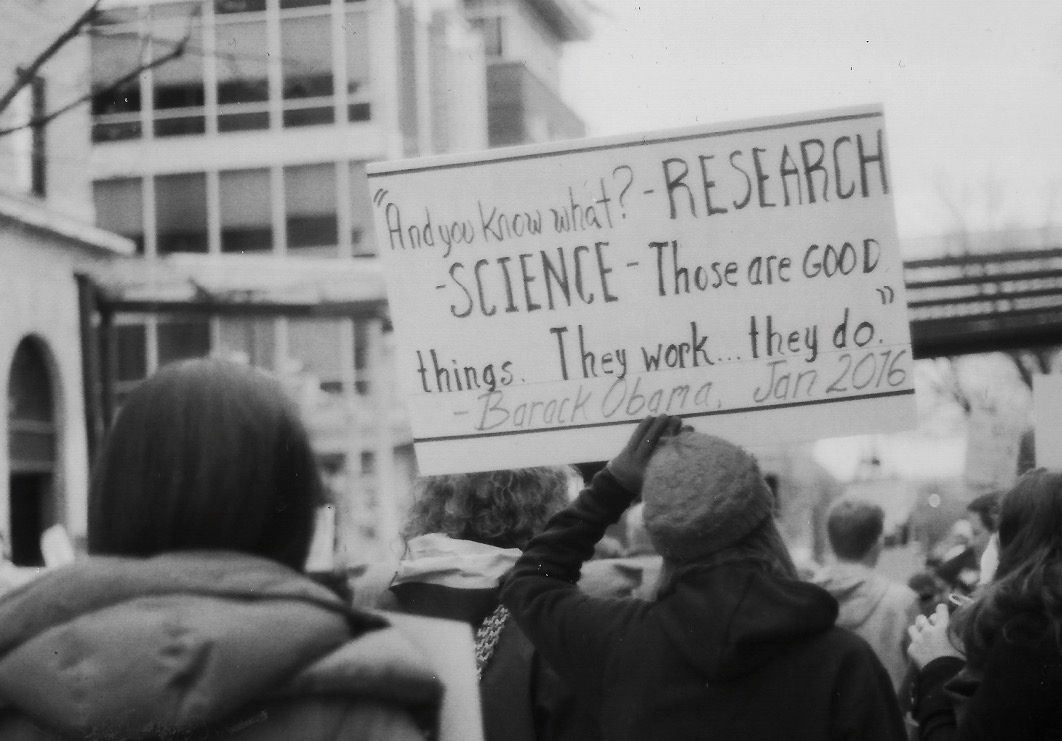 "And you know what? - RESEARCH
- SCIENCE - Those are GOOD
things. They work... they do."
- Barack Obama, Jan 2016